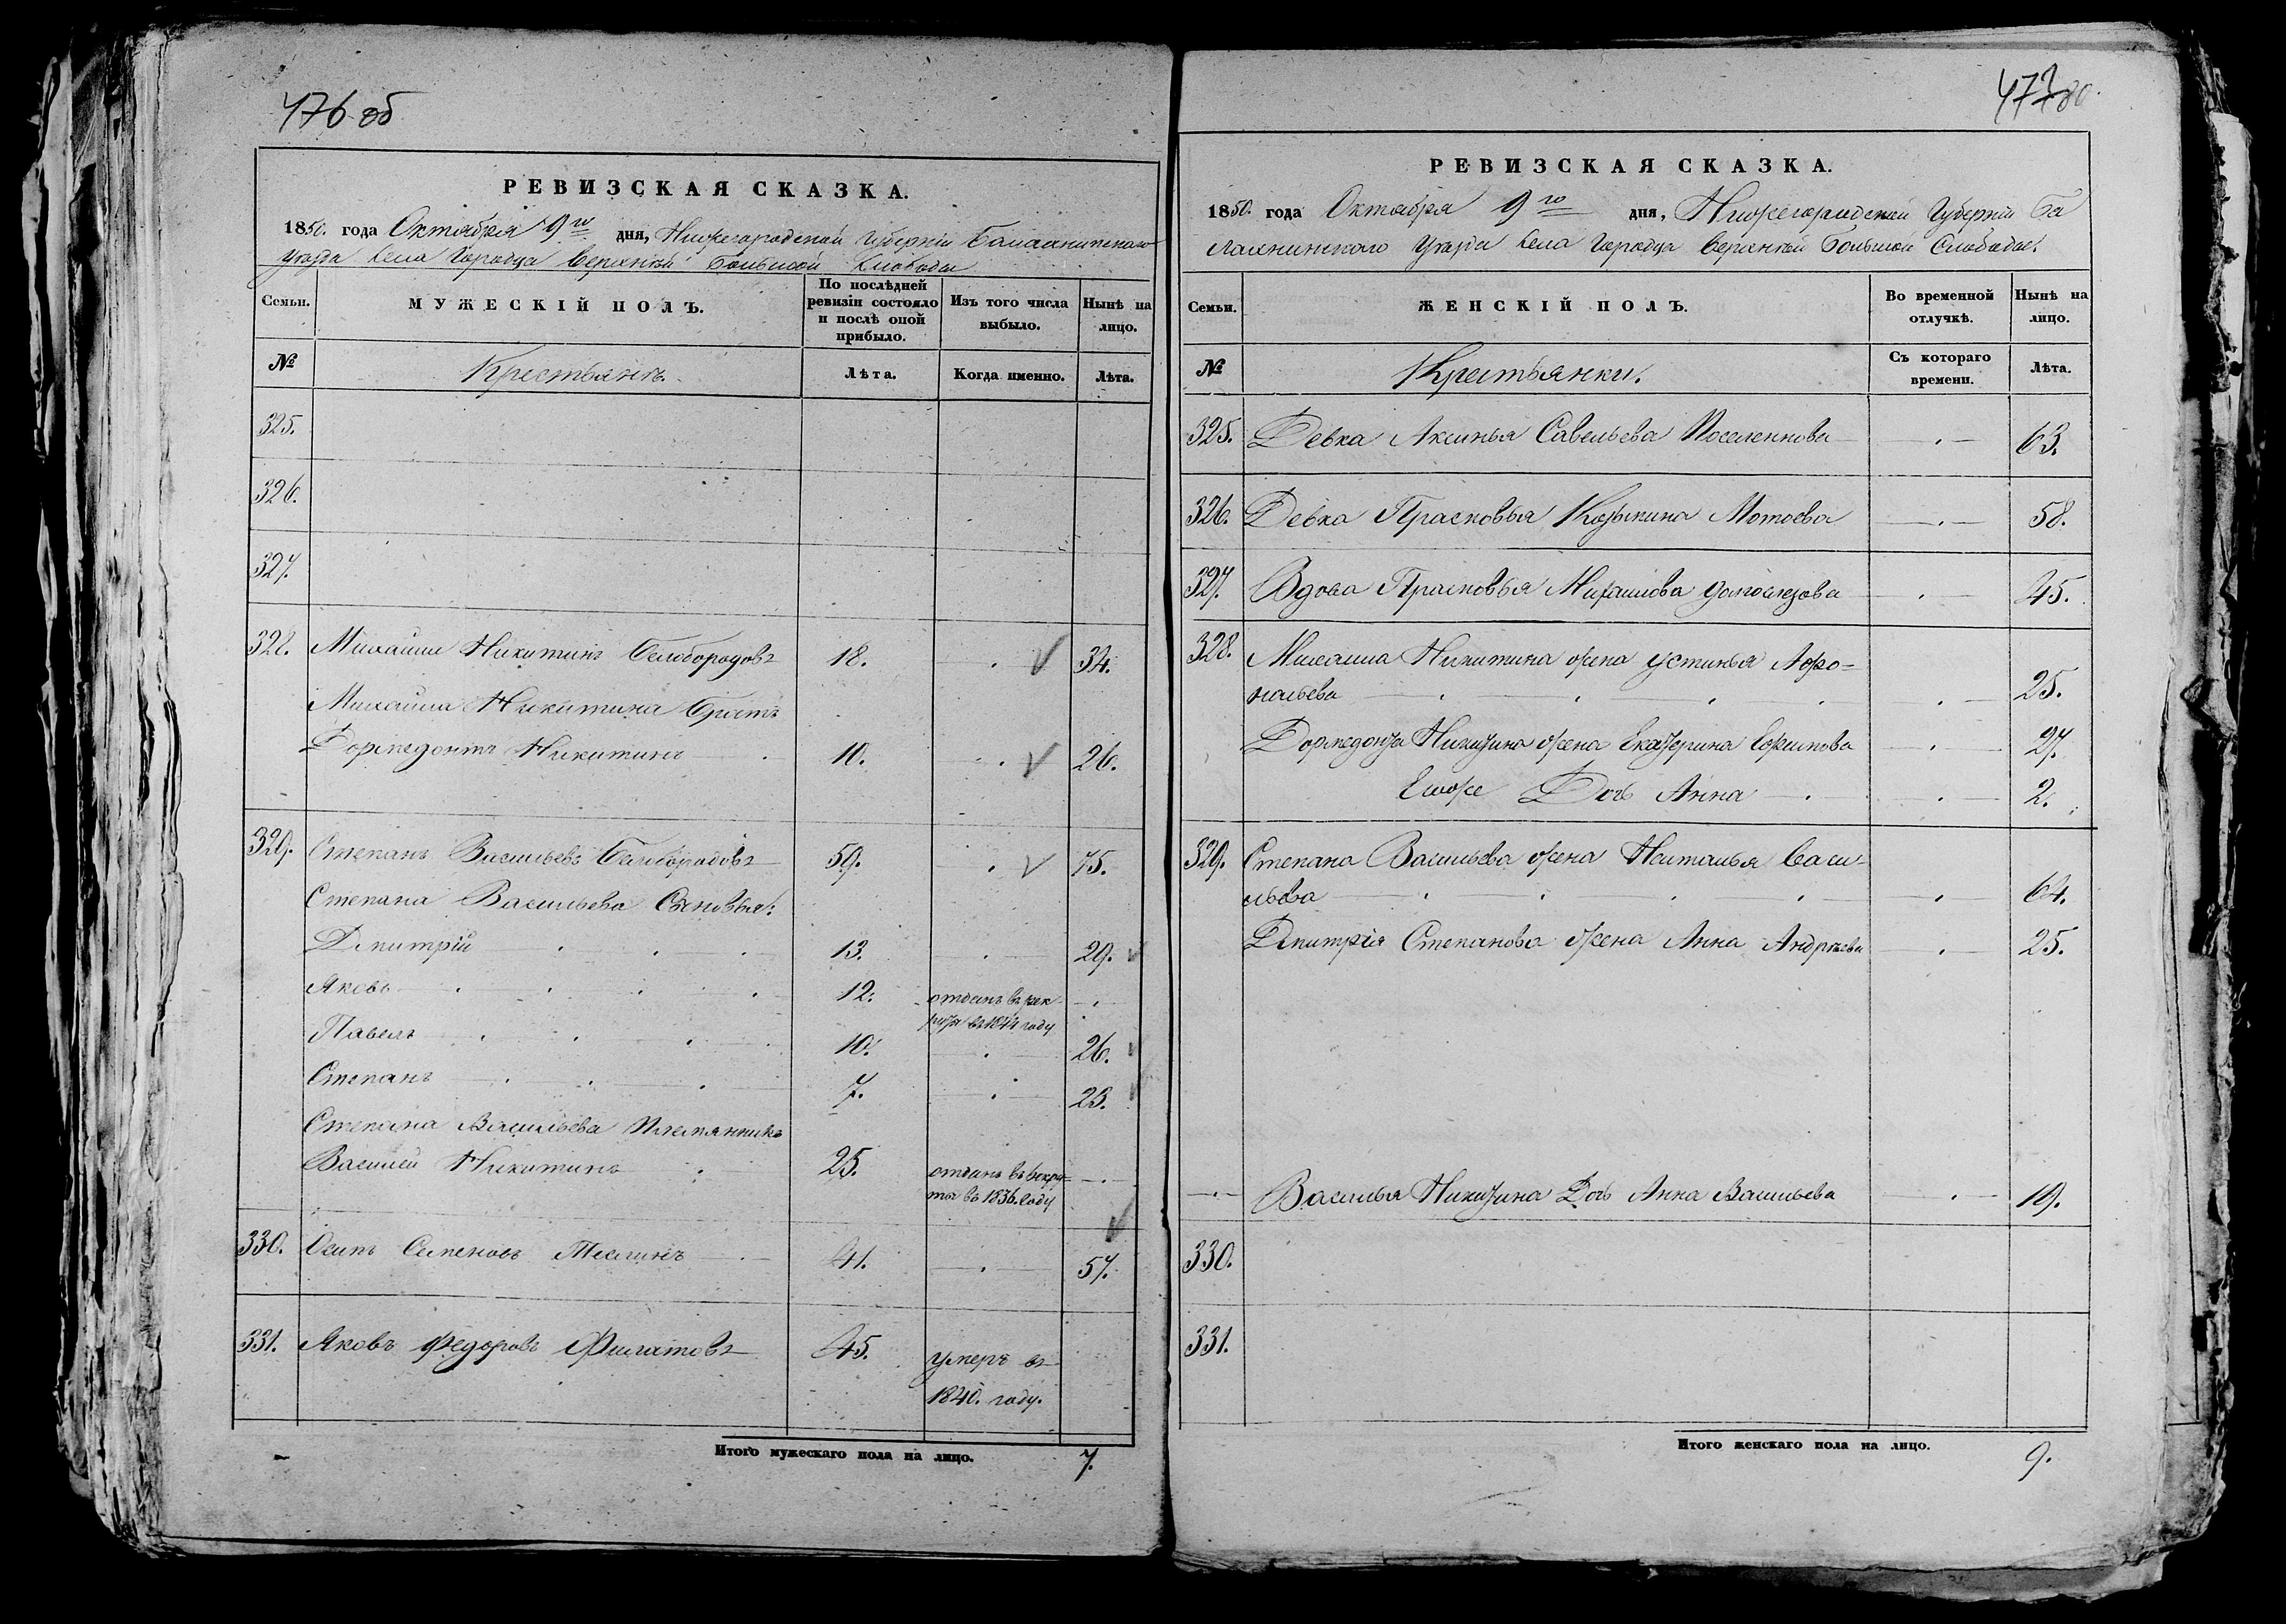 476 об
РЕВИЗСКАЯ СКАЗКА.
1850. года Октября 9го дня, Нижегородской Губерніи Балахнинскаго
Уезда Села Городца Верхней Большой Слободы
Семьи.
МУЖЕСКІЙ ПОЛЪ.
По послѣдней ревизіи состояло и послѣ оной прибыло.
Изъ того числа выбыло.
Нынѣ на лицо.
№
Крестьянъ.
Лѣта.
Когда именно.
Лѣта.
325.
326.
327.
328. Михайла Никитинъ Белобородовъ 18. 34.
Михайла Никитина братъ
Дормедонтъ Никитинъ 10. 26.
329. Степанъ Васильевъ Белобородовъ 59. 75.
Степана Васильева Сыновья:
Дмитрій 13. 29.
Яковъ 12. отданъ въ рек
руты въ 1844 году
Павелъ 10. 26.
Степанъ 7. 23.
Степана Васильева племянникъ
Василей Никитинъ 25. отданъ въ рекру-
ты въ 1836. году
330. Осипъ Семеновъ 41. 57.
331. Яковъ Федоровъ Филатовъ 45. умеръ въ
1840. году.
Итого мужескаго пола на лицо. 7.
477 80.
РЕВИЗСКАЯ СКАЗКА.
1850. года Октября 9го дня, Нижегородской Губерніи Ба
лахнинскаго Уезда Села Городца Верхней Большой Слободы.
Семьи.
ЖЕНСКІЙ ПОЛЪ.
Во временной отлучкѣ.
Нынѣ на лицо.
№
Крестьянки.
Съ котораго времени.
Лѣта.
325. Девка Аксинья Савельева Поселеннова 63.
326. Девка Прасковья Козьмина Мотоева 58.
327. Вдова Прасковья Михайлова 45.
328. Михайла Никитина жена Устинья Афо-
насьева 25.
Дормедонта Никитина жена Екатерина Ефимова 27.
Ешже Дочь Анна 2.
329. Степана Васильева жена Наталья Васи-
льева 64.
Дмитрія Степанова жена Анна Андреева 25.
Василья Никитина Дочь Анна Васильева 19.
330.
331.
Итого женскаго пола на лицо. 9.